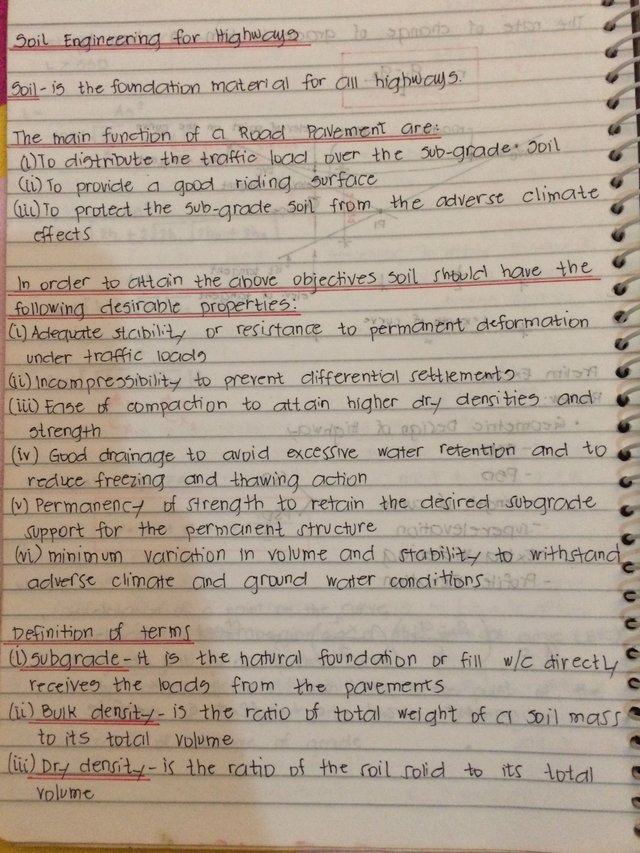 Soil Engineering for Highways
Soil- is the foundation material for all highways.
The main function of a Road Pavement are:
(i) To distribute the traffic load over the sub-grade soil
(ii) To provide a good riding surface
(iii) To protect the sub-grade soil from the adverse climate
effects
In order to attain the above objectives soil should have the
following desirable properties:
(i) Adequate stability or resistance to permanent deformation
under traffic loads
(ii) Incompressibility to prevent differential settlements
(iii) Ease of compaction to attain higher dry densities and
strength
(iv) Good drainage to avoid excessive water retention and to
reduce freezing and thawing action
(v) Permanency of strength to retain the desired subgrade
support for the permanent structure
(vi) minimum variation in volume and stability to withstand
adverse climate and ground water conditions
Definition of terms
(i) Subgrade- It is the natural foundation or fill w/c directly
receives the loads from the pavements
(ii) Bulk density- is the ratio of total weight of a soil mass
to its total volume
(iii) Dry density- is the ratio of the soil solid to its total
volume